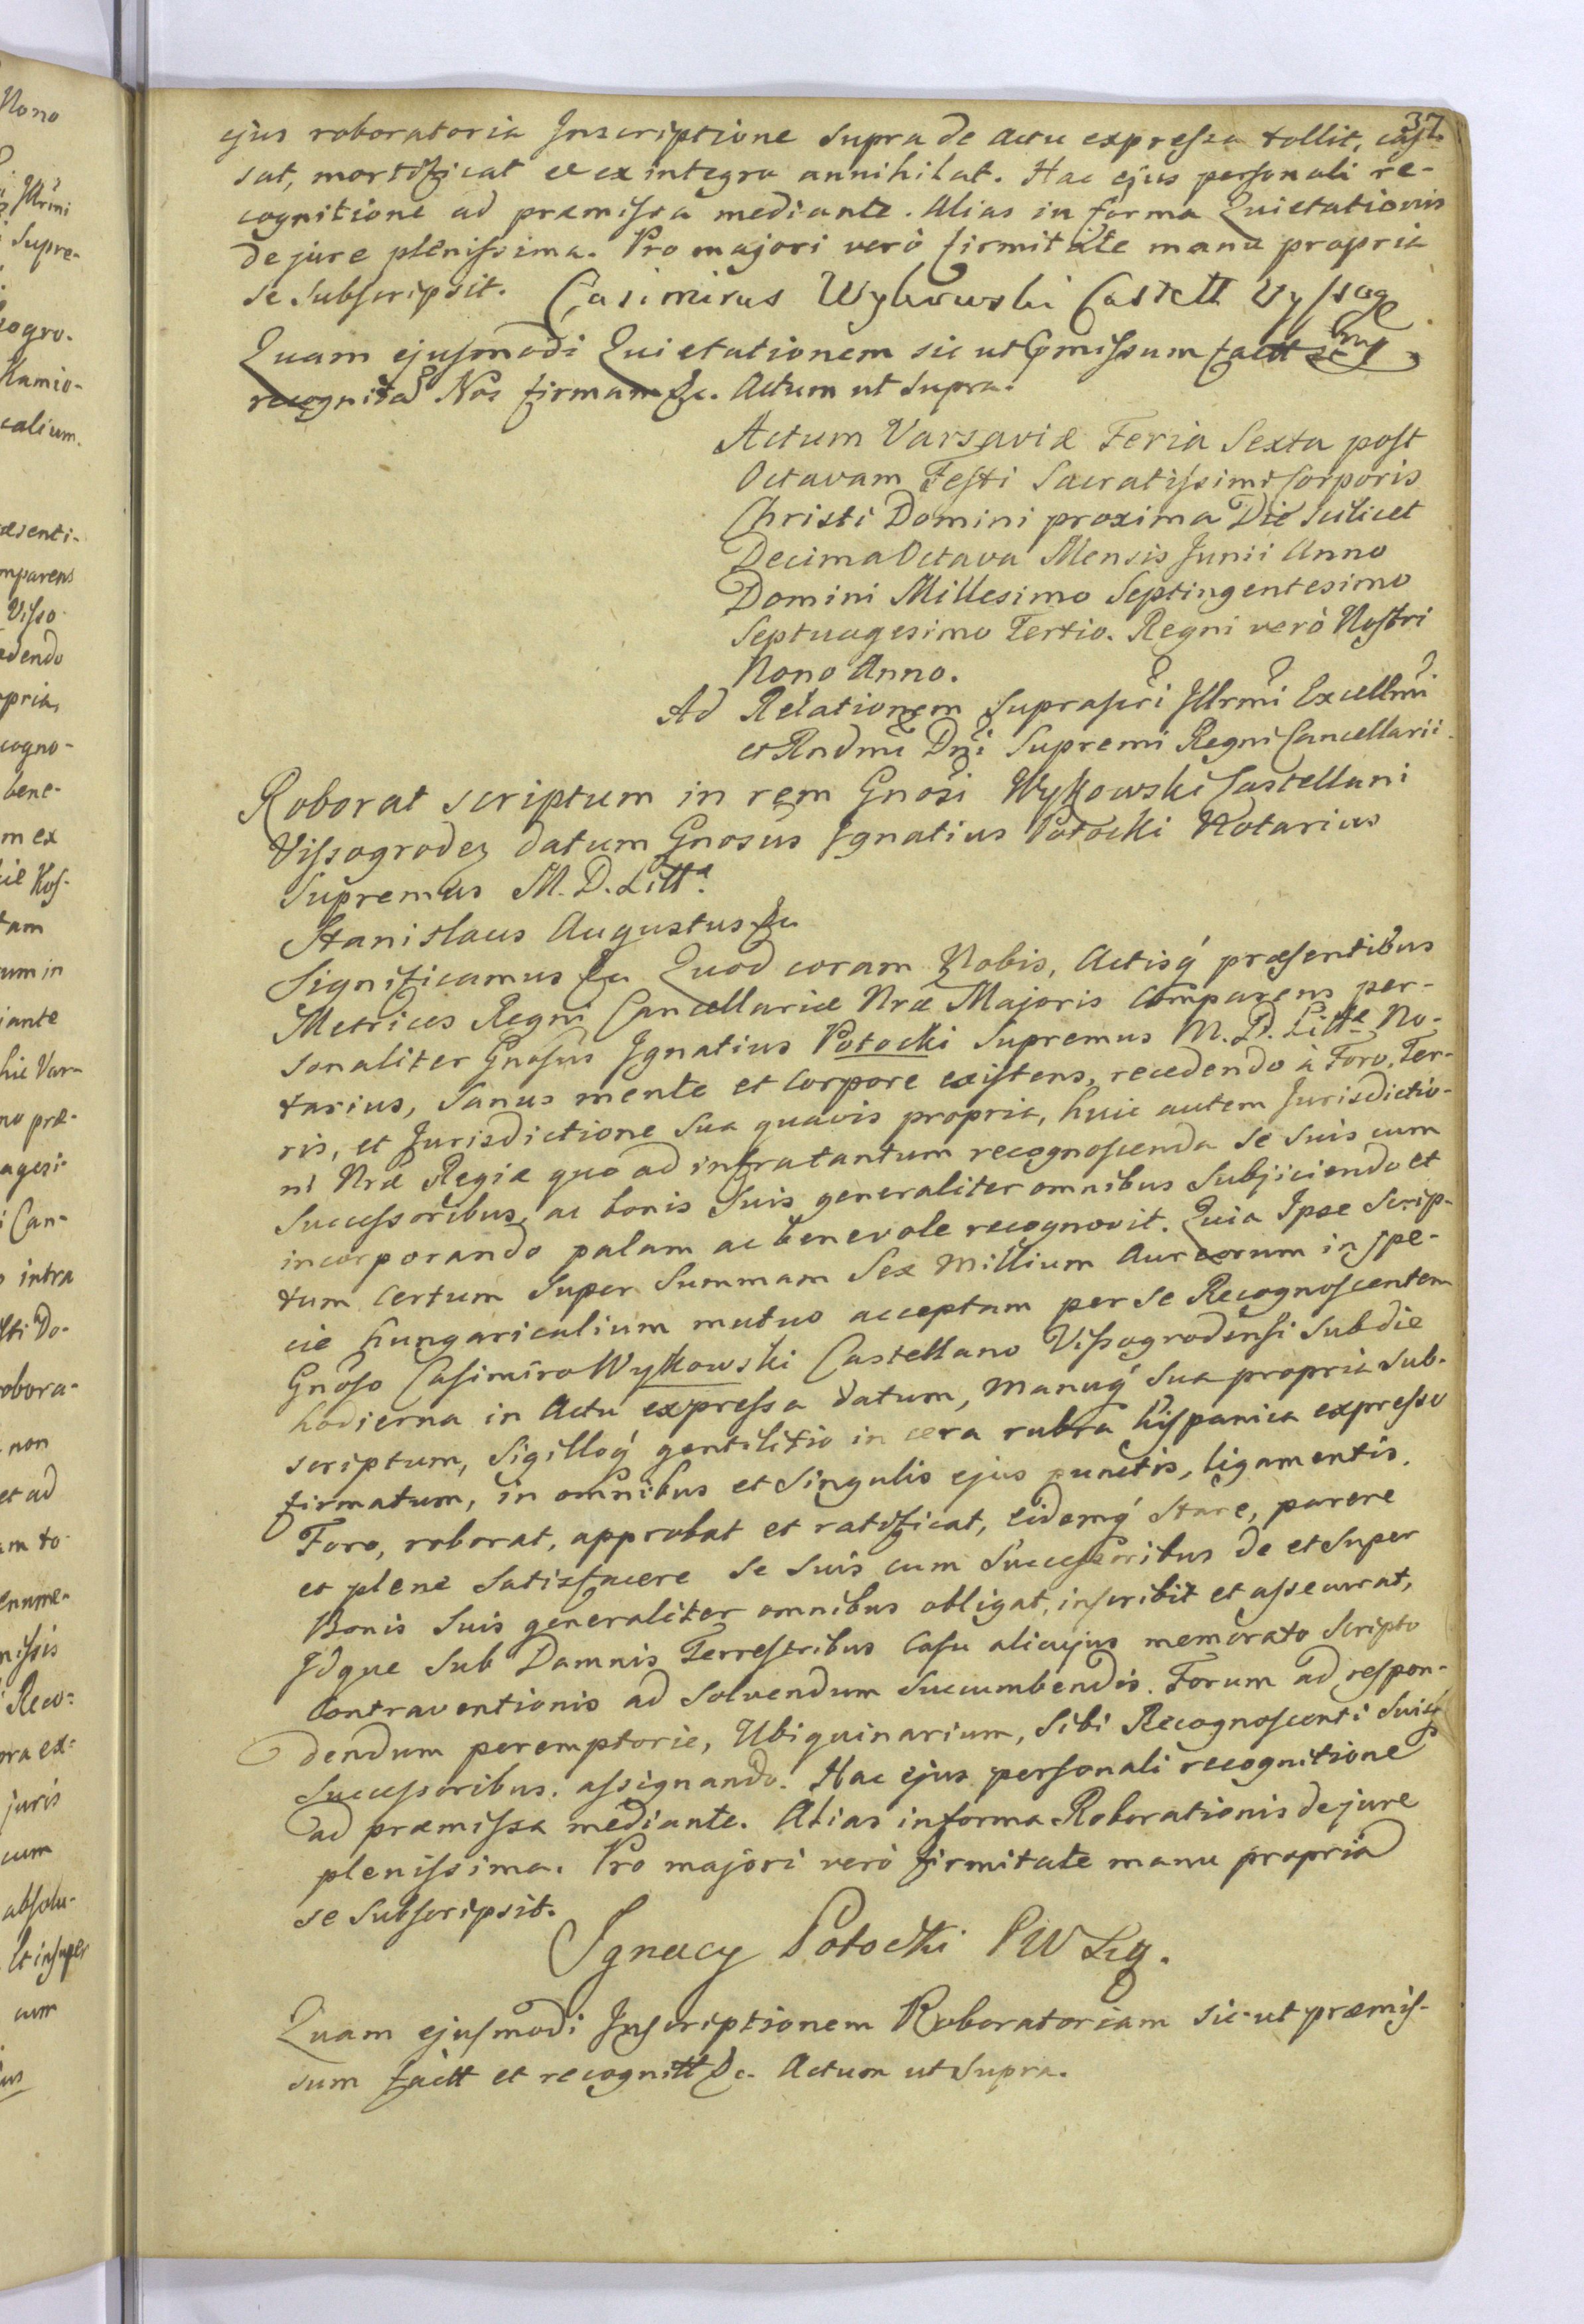 37
ejus roboratoria Inscriptione supra de actu expressa tollit, cas-
sat, mortificat et ex integro annihilat. Hac ejus personali re-
cognitione ad præmissa mediante. Alias in forma Quietationis
de jure plenissima. Pro majori verò firmitate manu propria
se subscripsit. Casimirus Wykowski Castell Vyssog
Quam ejusmodi Quietationem sic ut pmissum factt et
recognita Nos firmam &c. Actum ut supra.
Actum Varsaviæ Feria Sexta post
Octavam Festi Sacratissimi Corporis
Christi Domini proxima Die scilicet
Decima Octava Mensis Junii Anno
Domini Millesimo Septingentesimo
Septuagesimo Tertio. Regni verò Nostri
Nono Anno.
Ad Relationem suprascri Illrmi Excellmi
et Rndmi Dni Supremi Regni Cancellarii.
Roborat scriptum in rem Gnosi Wykowski Castellani
Vissogroden datum Gnosus Ignatius Potocki Notarius
Supremus M. D. Litt.
Stanislaus Augustus &c
Significamus &c Quod coram Nobis, Actisq́ præsentibus
Metrices Regni Cancellariæ Nræ Majoris Comparens per-
sonaliter Gnosus Ignatius Potocki Supremus M. D. Littæ No-
tarius, sanus mente et corpore existens, recedendo à Foro, Ter-
ris, et Jurisdictione sua quavis propria, huic autem Jurisdictio-
ni Nræ Regiæ quo ad infratantum recognoscenda se suis cum
successoribus, ac bonis suis generaliter omnibus subjiciendo et
incorporando palam ac benevole recognovit. Quia Ipse scrip-
tum certum super Summam Sex Millium Aureorum in spe-
cie hungaricalium mutuo acceptam per se Recognoscentem
Gnoso Casimiro Wykowski Castellano Vissogrodensi sub die
hodierna in Actu expressa datum, manuq́ sua propria sub-
scriptum, sigilloq́ gentilitio in cera rubra hispanica expresso
firmatum, in omnibus et singulis ejus punctis, ligamentis,
Foro, roborat, approbat et ratificat, eidemq́ stare, parere
et plene satisfacere se suis cum successoribus de et super
Bonis suis generaliter omnibus obligat, inscribit et assecurat,
Idque sub Damnis Terrestribus casu alicujus memorato scripto
contraventionis ad solvendum succumbendis. Forum ad respon-
dendum peremptorie, Ubiquinarium, sibi Recognoscenti suisq́
successoribus. assignando. Hac ejus personali recognitione
ad præmissa mediante. Alias in forma Roborationis de jure
plenissima. Pro majori verò firmitate manu propria
se subscripsit.
Ignacy Potocki PW Lig.
Quam ejusmodi Inscriptionem Roboratoriam sic ut præmis-
sum factt et recognitt &c. Actum ut supra.